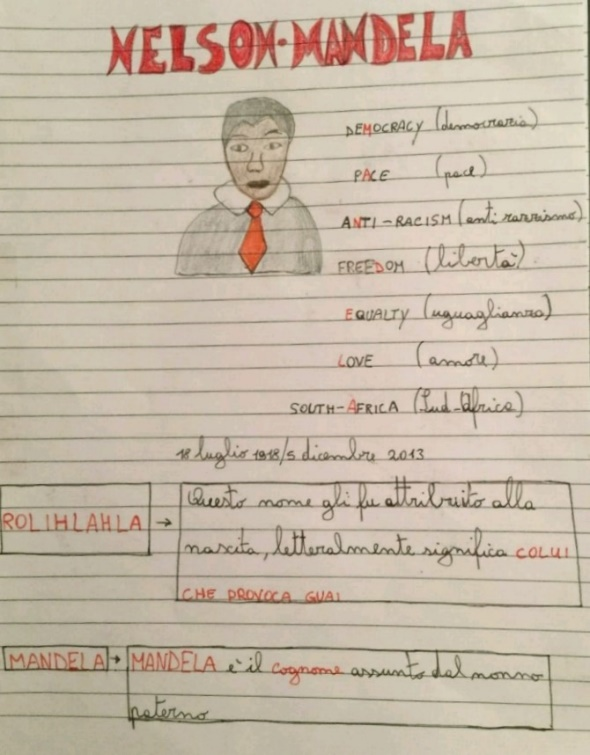 NELSON-MANDELA
DEMOCRACY (democrazia)
PACE (pace)
ANTI-RACISM (anti razzismo)
FREEDOM (libertà)
EQUALTY (uguaglianza)
LOVE (amore)
SOUTH-AFRICA (Sud-Africa)
18 luglio 1918/5 dicembre 2013
ROLIHLAHLA →
Questo nome gli fu attribuito alla
nascita, letteralmente significa COLUI
CHE PROVOCA GUAI
MANDELA → MANDELA è il cognome assunto dal nonno
paterno